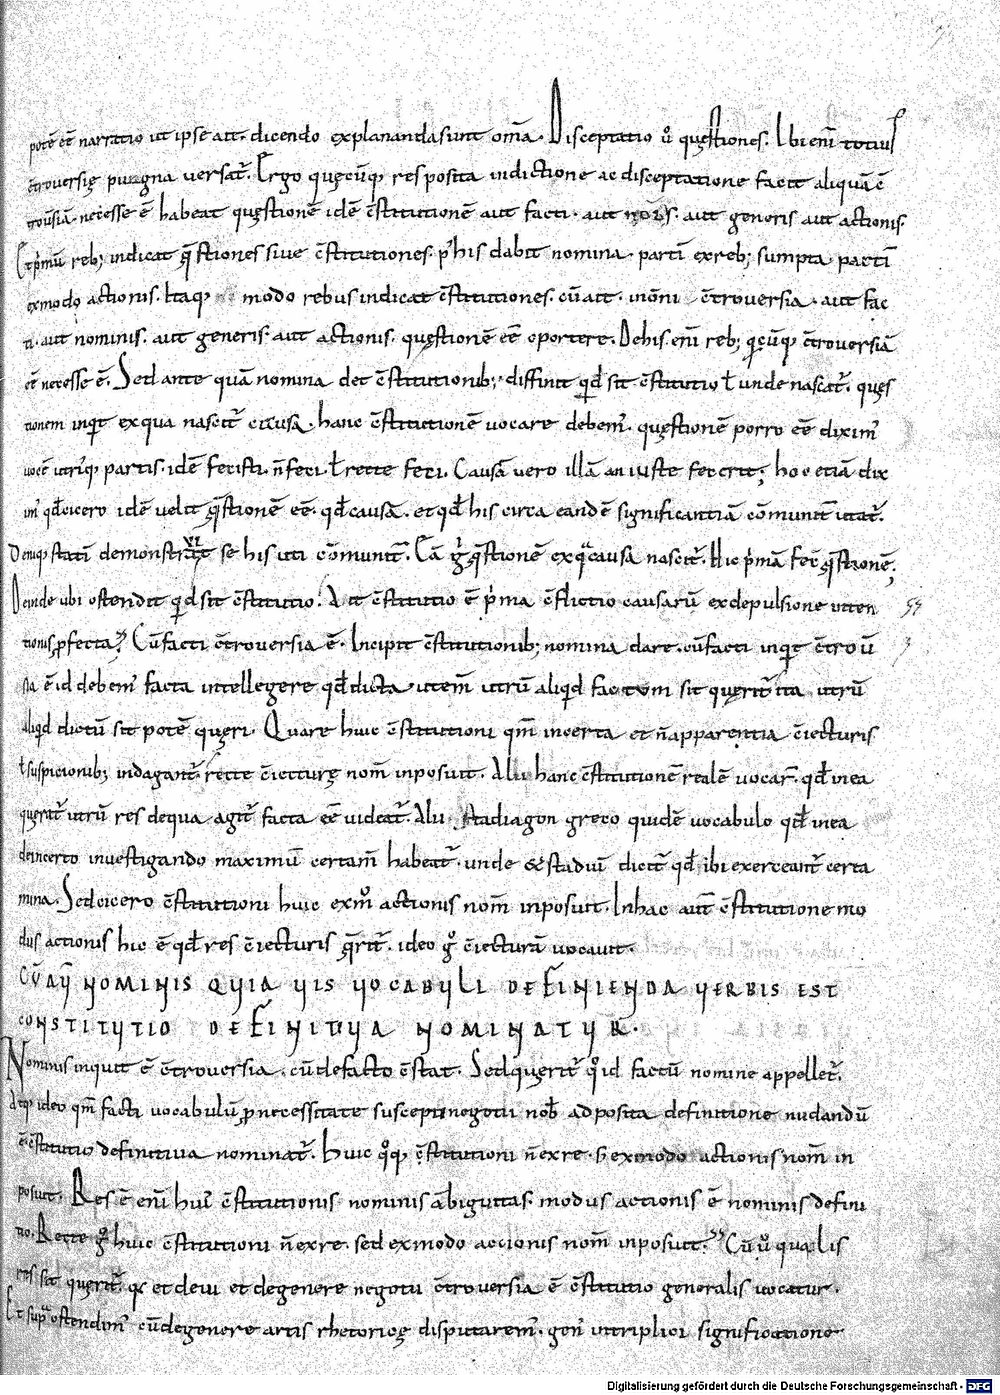 potē eē narratio ut ipse ait. dicendo explananda sunt om̄a. Disceptatio ů quęstiones. Ubi enī totius
c̄trouersię pugna uersat̄. Ergo quęcūq; res posita in dictione ac disceptatione facit aliquā c̄
trouersiā necesse ē habeat quęstionē idē c̄stitutionē aut facti. aut nōis. aut generis aut actionis.
Et p̄mū reb; indicat q̄stiones siue c̄stitutiones. p̄ his dabit nomina. partī ex reb; sumpta partī
ex modo actionis. Itaq; modo rebus indicat c̄stitutiones. cū ait. in om̄i c̄trouersia. aut fac
ti. aut nominis. aut generis. aut actionis. quęstionē eē oportere. De his enī reb; q̄cūq; c̄trouersiā
eē necesse ē. Sed ante quā nomina det c̄stitutionib; diffinit qd̄ sit c̄stitutio ł unde nascat̄. quęs
tionem inquit ex qua nascit̄ causa. hanc c̄stitutionē uocare debem̄. quęstionē porro eē dixim̄
uocē utriq; partis. idē fecisti. n̄ feci. ł recte feci. Causā uero illā an iuste fecerit; hoc etiā dix
im̄ qd̄ cicero idē uelit q̄stionē eē. qd̄ causā. et qd̄ his circa eandē significantiā cōmunit̄ utat̄.
Deniq; statī demonstrauit se his uti cōmunit̄. Eā g̊ q̄stionē ex qua causa nascit̄. Hic p̄mā fec̄ q̄stionē;
Deinde ubi ostendit qd̄ sit c̄stitutio. Ait c̄stitutio ē p̄ma c̄flictio causarū ex depulsione inten
tionis pfecta. Cū facti c̄trouersia ē. Incipit c̄stitutionib; nomina dare. cū facti inquit c̄trou
sia ē id debem̄ facta intellegere qd̄ dicta. ut enī utrū aliqid factum sit querit̄ ita utrū
aliqd dictū sit potē queri. Quare huic c̄stitutioni qm̄ incerta et n̄ apparentia c̄iecturis
ł suspicionib; indagant̄. recte c̄iecturę nom̄ inposuit. Alii hanc c̄stitutionē realē uocar̄. qd̄ in ea
querit̄ utrū res de qua agit̄ facta eē uideat̄. Alii stadiagon greco quidē uocabulo qd̄ in ea
de incerto inuestigando maximū certam̄ habeat̄. unde & stadiū dicit̄ qd̄ ibi exerceant̄ certa
mina. Sed cicero c̄stitutioni huic ex m̊ actionis nom̄ inposuit. In hac aut̄ c̄stitutione mo
dus actionis hic ē qd̄ res c̄iecturis q̄rit̄. ideo g̊ c̄iecturā uocauit.
CŪ AŪ NOMINIS QUIA UIS UOCABULI DEFINIENDA UERBIS EST
CONSTITUTIO DEFINITIUA NOMINATUR.
Nominis inquit ē c̄trouersia. cū de facto c̄stat. Sed querit̄ q̊ id factū nomine appellet̄.
Atq; ideo qm̄ facti uocabulū p necessitate suscepti negotii nob̄ ad posita definitione nudandū
ē c̄stitutio definitiua nominat̄. Huic q̊q; c̄stitutioni n̄ ex re. s; ex modo actionis nom̄ in
posuit. Res ē enī hui c̄stitutionis nominis ābiguitas. modus actionis ē nominis defini
tio. Recte g̊ huic c̄stitutioni n̄ ex re. sed ex modo accionis nom̄ inposuit. Cū ů qualis
res sit querit̄. q̄ et de ui et de genere negotii c̄trouersia ē c̄stitutio generalis uocatur.
Et sup̄ ostendim̄ cū de genere artis rhetoricę disputarem̄. gen̄ in triplici significatione
Digitalisierung gefördert durch die Deutsche Forschungsgemeinschaft - DFG